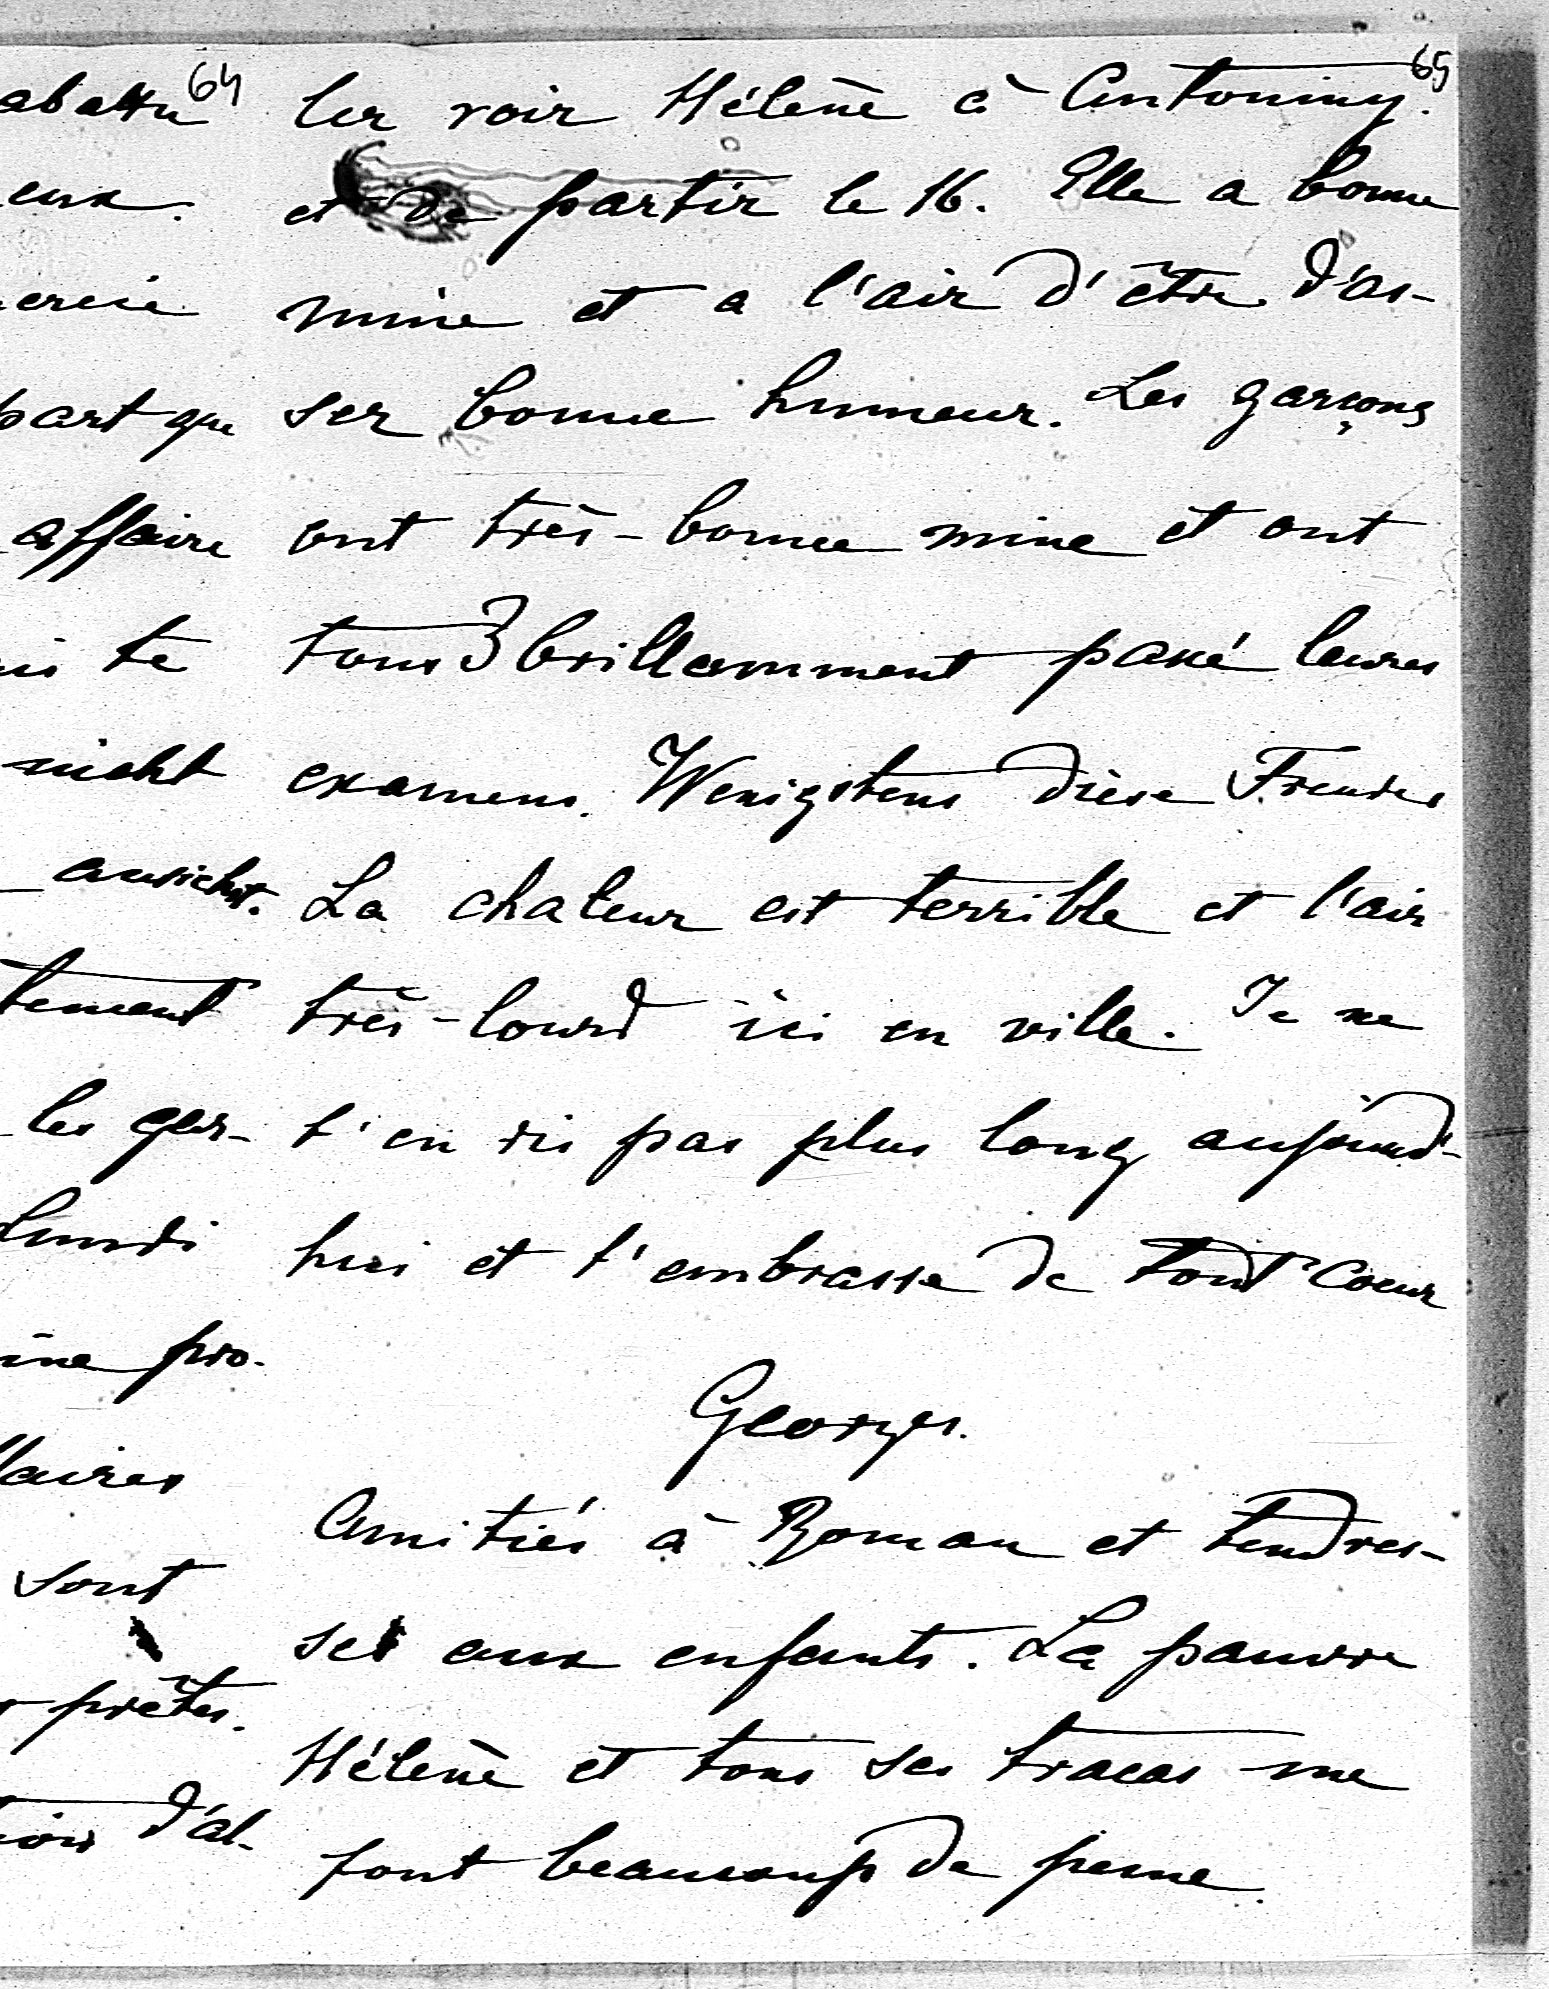 64
abattu
eux.
ercie
part que
affaire
is te
nicht
aussicht.
tement
les gar-
lundi
ine pro-
laires
sont
prêtes.
tion d'al-
65
ler voir Hélène à Antoniny.
et de partir le 16. Elle a bonne
mine et a l'air d'être d'as-
sez bonne humeur. Les garçons
ont très-bonne mine et ont
tous 3 brillamment passé leurs
examens. Wenigstens diese Freude
La chaleur est terrible et l'air
très-lourd ici en ville. Je ne
t'en dis pas plus long aujourd'-
hui et t'embrasse de tout coeur
Georges.
Amitiés à Roman et tendres-
ses aux enfants. La pauvre
Hélène et tous ses tracas me
font beaucoup de peine.